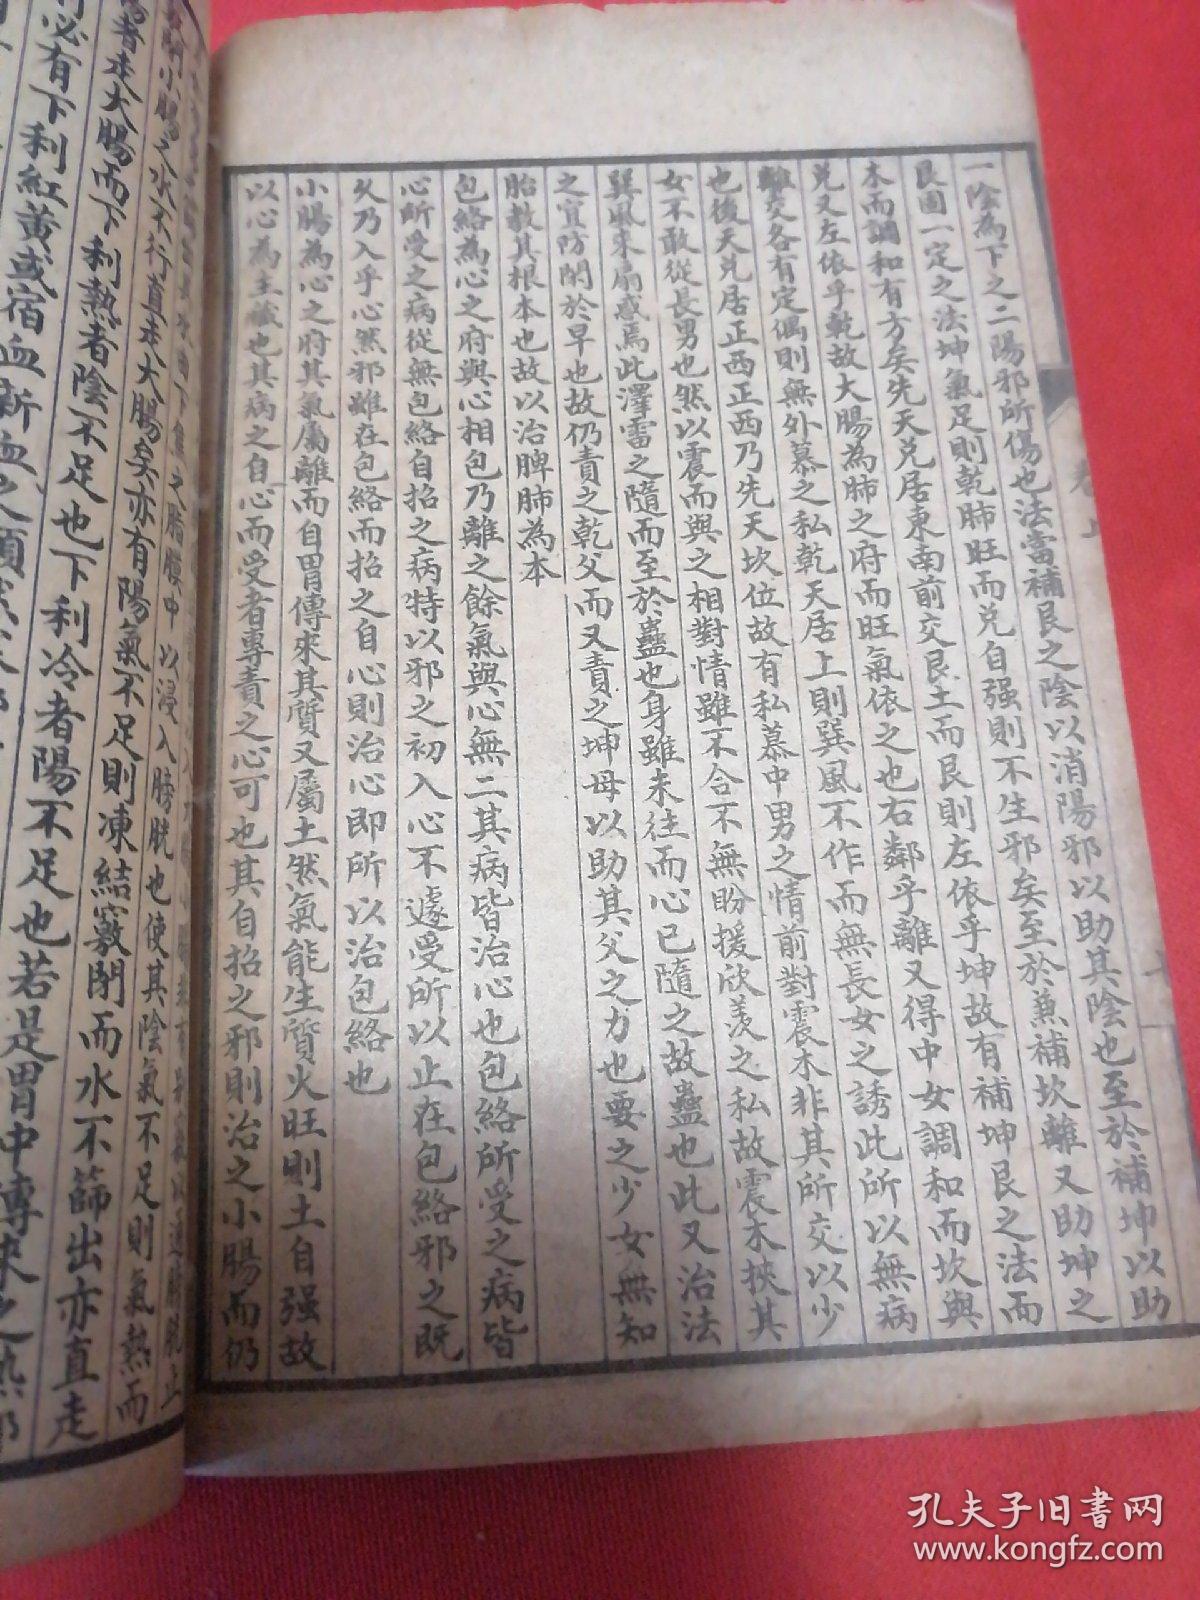 卷上
一陰為下之二陽邪所傷也法當補艮之陰以消陽邪以助其陰也至於補坤以助
艮固一定之法坤氣足則乾肺旺而兌自强則不生邪矣至於兼補坎離又助坤之
木而調和有方矣先天兌居東南前交艮土而艮則左依乎坤故有補坤艮之法而
兌又左依乎乾故大腸為肺之府而旺氣依之也右鄰乎離又得中女調和而坎與
離交各有定偶則無外慕之私乾天居上則巽風不作而無長女之誘此所以無病
也後天兌居正西正西乃先天坎位故有私慕中男之情前對震木非其所交以少
女不敢從長男也然以震而與之相對情雖不合不無盼援欣羨之私故震木挾其
巽風來扇惑焉此澤雷之隨而至於蠱也身雖未往而心已隨之故蠱也此又治法
之宜防閑於早也故仍責之乾父而又責之坤母以助其父之力也要之少女無知
胎教其根本也故以治脾肺為本
包絡為心之府與心相包乃離之餘氣與心無二其病皆治心也包絡所受之病皆
心所受之病從無包絡自招之病特以邪之初入心不遽受所以止在包絡邪之既
久乃入乎心然邪雖在包絡而招之自心則治心即所以治包絡也
小腸為心之府其氣屬離而自胃傳來其質又屬土然氣能生質火旺則土自强故
以心為主藏也其病之自心而受者專責之心可也其自招之邪則治之小腸而仍
小腸之水不行直走大腸矣亦有陽氣不足則凍結竅閉而水不篩出亦直走
之脂膜中以浸入膀胱也使其陰氣不足則氣熱而
者走大腸而下利熱者陰不足也下利冷者陽不足也若是胃中傳來之熱
必有下利紅黃或宿血新血之類
孔夫子旧书网
www.kongfz.com